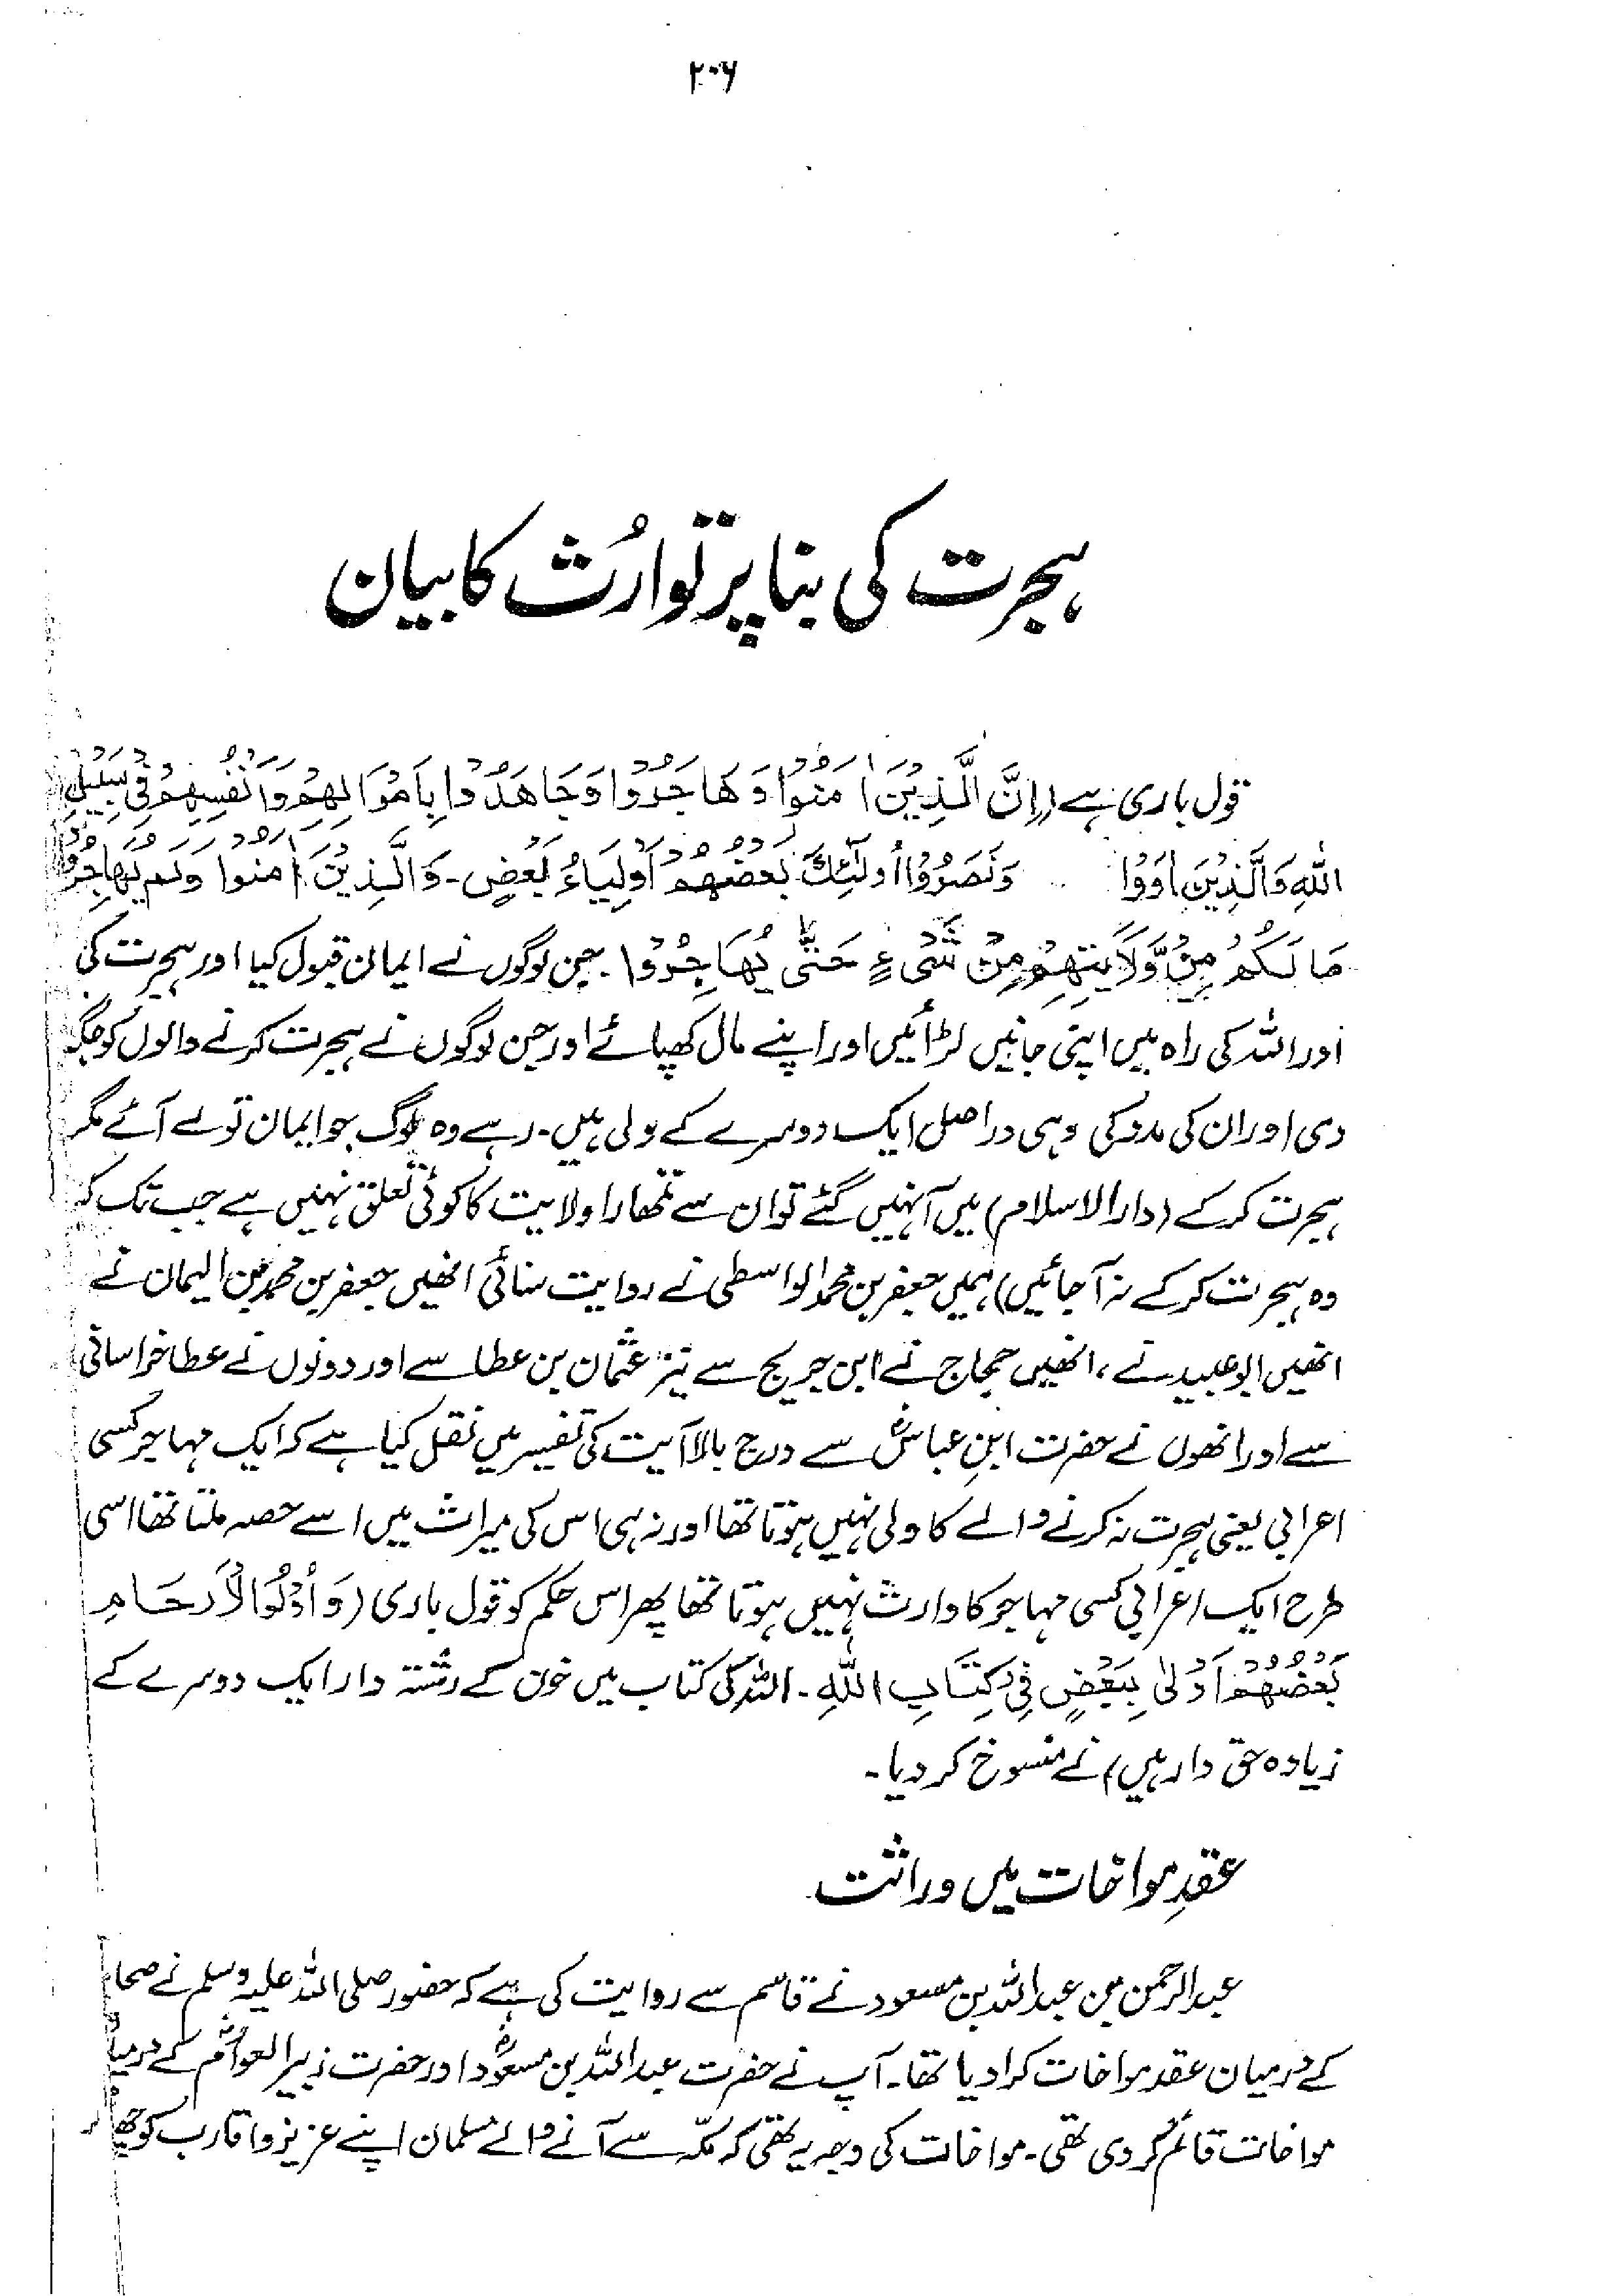 ۲۰۶
ہجرت کی بنا پر توارُث کا بیان
قول باری ہے (اِنَّ الَّذِیْنَ اٰمَنُوْا وَهَاجَرُوْا وَجَاهَدُوْا بِاَمْوَالِهِمْ وَاَنْفُسِهِمْ فِیْ سَبِیْلِ
اللّٰهِ وَالَّذِیْنَ اٰوَوْا وَنَصَرُوْا اُولٰٓئِكَ بَعْضُهُمْ اَوْلِیَاءُ بَعْضٍ۔ وَالَّذِیْنَ اٰمَنُوْا وَلَمْ یُهَاجِرُوْا
مَا لَكُمْ مِنْ وَّلَایَتِهِمْ مِنْ شَیْءٍ حَتّٰی یُهَاجِرُوْا۔ جن لوگوں نے ایمان قبول کیا اور ہجرت کی
اور اللہ کی راہ میں اپنی جانیں لڑائیں اور اپنے مال کھپائے اور جن لوگوں نے ہجرت کرنے والوں کو جگہ
دی اور ان کی مدد کی وہی دراصل ایک دوسرے کے ولی ہیں۔ رہے وہ لوگ جو ایمان تو لے آئے مگر
ہجرت کر کے (دارالاسلام) میں آ نہیں گئے تو ان سے تمھارا ولایت کا کوئی تعلق نہیں ہے جب تک کہ
وہ ہجرت کر کے نہ آ جائیں) ہمیں جعفر بن محمد الواسطی نے روایت سنائی انھیں جعفر بن محمد بن الیمان نے
انھیں ابوعبید نے، انھیں حجاج نے ابن جریج سے نیز عثمان بن عطا سے اور دونوں نے عطا خراسانی
سے اور انھوں نے حضرت ابنِ عباسؓ سے درج بالا آیت کی تفسیر میں نقل کیا ہے کہ ایک مہاجر کسی
اعرابی یعنی ہجرت نہ کرنے والے کا ولی نہیں ہوتا تھا اور نہ ہی اس کی میراث میں اسے حصہ ملتا تھا اسی
طرح ایک اعرابی کسی مہاجر کا وارث نہیں ہوتا تھا پھر اس حکم کو قول باری (وَاُولُوا الْاَرْحَامِ
بَعْضُهُمْ اَوْلٰی بِبَعْضٍ فِیْ كِتَابِ اللّٰهِ۔ اللہ کی کتاب میں خون کے رشتہ دار ایک دوسرے کے
زیادہ حق دار ہیں) نے منسوخ کر دیا۔
عقدِ مواخات میں وراثت
عبدالرحمن بن عبداللہ بن مسعود نے قاسم سے روایت کی ہے کہ حضور صلی اللہ علیہ وسلم نے
کے درمیان عقد مواخات کرا دیا تھا۔ آپ نے حضرت عبداللہ بن مسعودؓ اور حضرت زبیر العوامؓ کے
مواخات قائم کر دی تھی۔ مواخات کی وجہ یہ تھی کہ مکّہ سے آنے والے مسلمان اپنے عزیز و اقارب کو